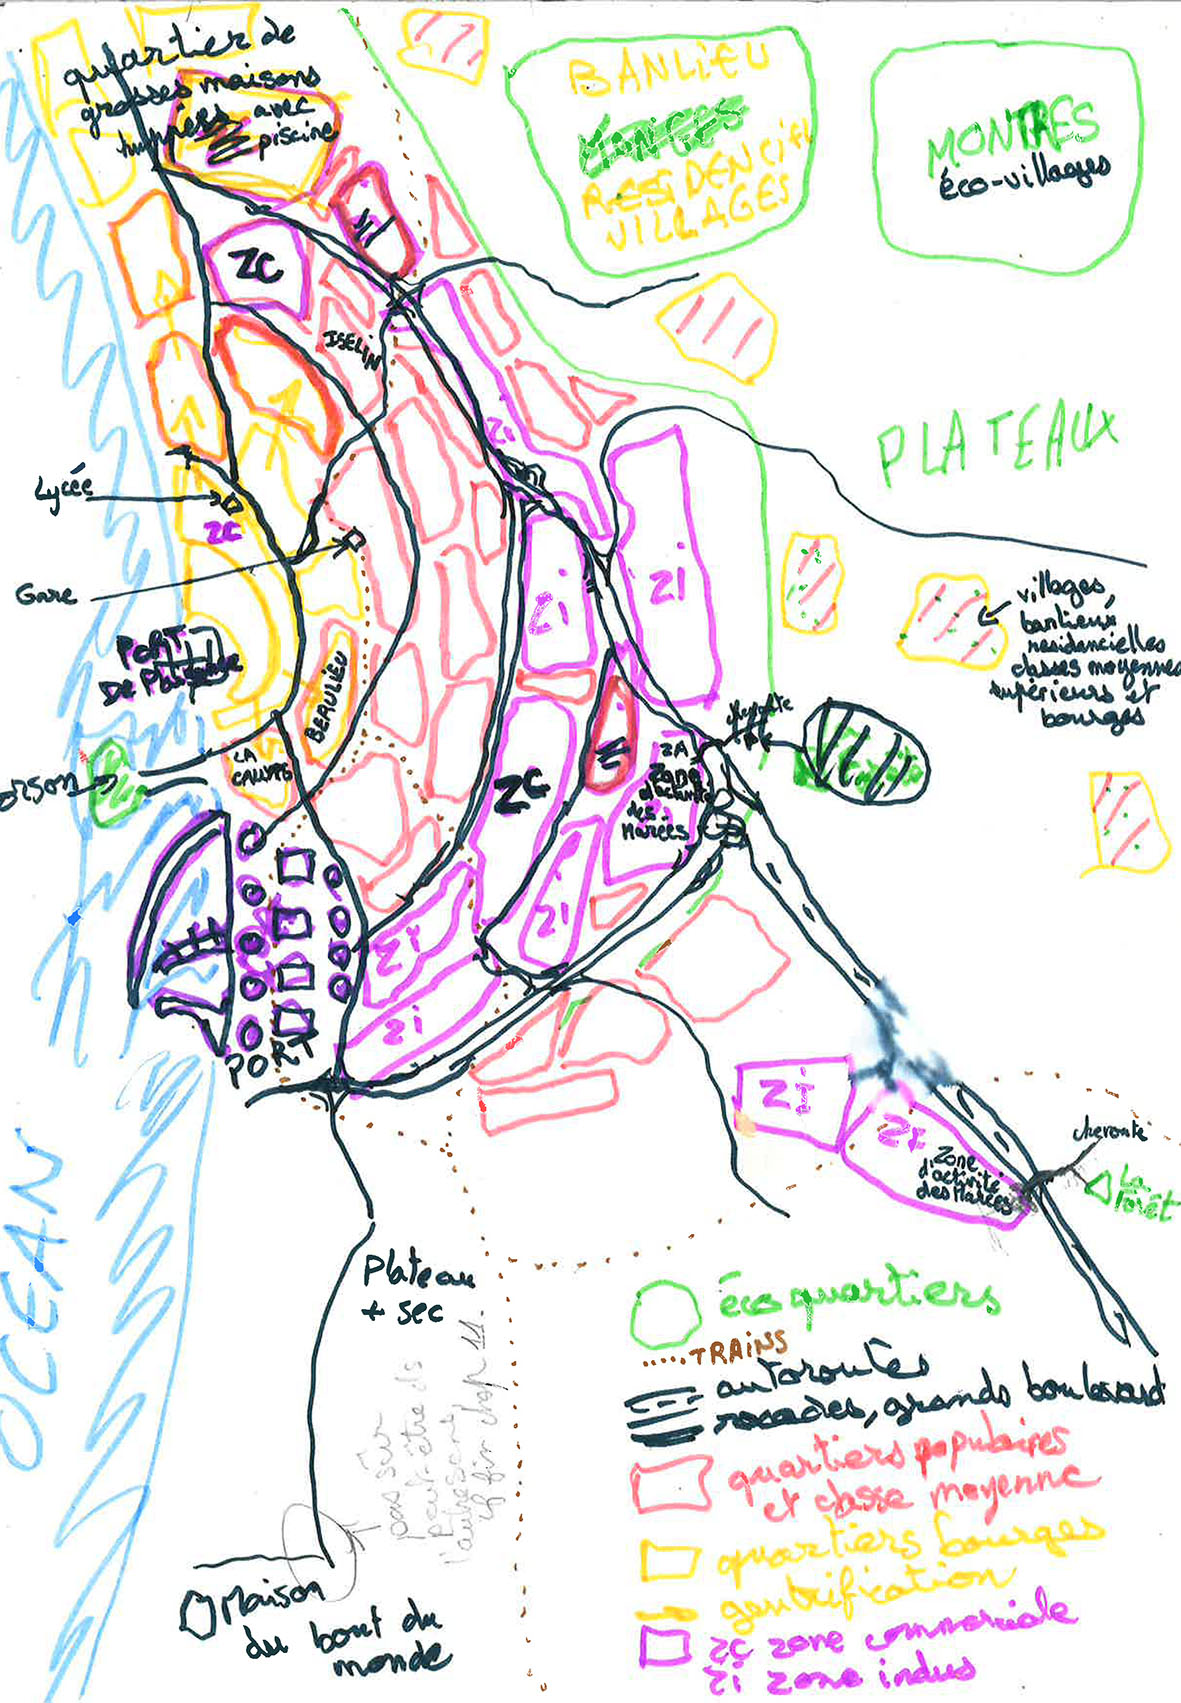 quartier de
grosses maisons
avec
piscine
BANLIEU
RESIDENCIEL
VILLAGES
MONTRES
éco-villages
ZC
ISELIN
Zi
PLATEAUX
Lycée
ZC
Gare
Zi
Zi
PORT
De Plaisance
villages,
banlieux
résidancielles
classes moyennes
supérieurs et
bourges
BEAULIEU
LA
CALYPSO
ZC
ZA
Zone
d'activité
des
Narcées
Zi
Zi
Zi
PORT
OCEAN
Zi
Zi
Zone
d'activité
des Narcées
cheroute
La
forêt
Plateau
+ sec
pas sûr
peut-être ds
l'autre sens
cf fin chap 11.
éco quartiers
TRAINS
autoroutes
rocades, grands boulevard
quartiers populaires
et classe moyenne
quartiers bourges
gentrification
ZC zone commerciale
Zi zone indus
Maison
du bout du
monde